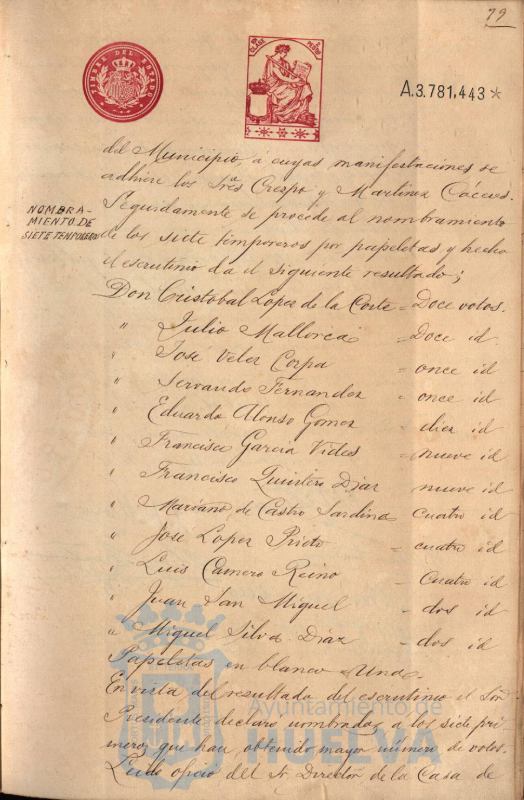 79
TIMBRE DEL ESTADO
A.3.781,443*
del Municipio, á cuyas manifestaciones se
adhiere los Sres Crespo y Martinez Cáceres.
NOMBRA-
MIENTO DE
SIETE TEMPOREROS
Seguidamente se procede al nombramiento
de los siete temporeros por papeletas y hecho
el escrutinio da el siguiente resultado;
Don Cristobal Lopez de la Corte = Doce votos.
" Julio Mallorca = Doce id.
" Jose Velez Corpa = once id
" Servando Fernandez = once id
" Eduardo Alonso Gomez = diez id
" Francisco Garcia Vides = nueve id
" Francisco Quintero Diaz nueve id
" Mariano de Castro Sardina Cuatro id
" Jose Lopez Prieto = cuatro id
" Luis Camero Reino = Cuatro id
" Juan San Miguel = dos id
" Miguel Silva Diaz = dos id
Papeletas en blanco Una.
En vista del resultado del escrutinio el Sor
Presidente declaró nombrados a los siete pri
meros que han obtenido mayor número de votos.
Leido oficio del Sr Director de la Casa de
Ayuntamiento de
HUELVA